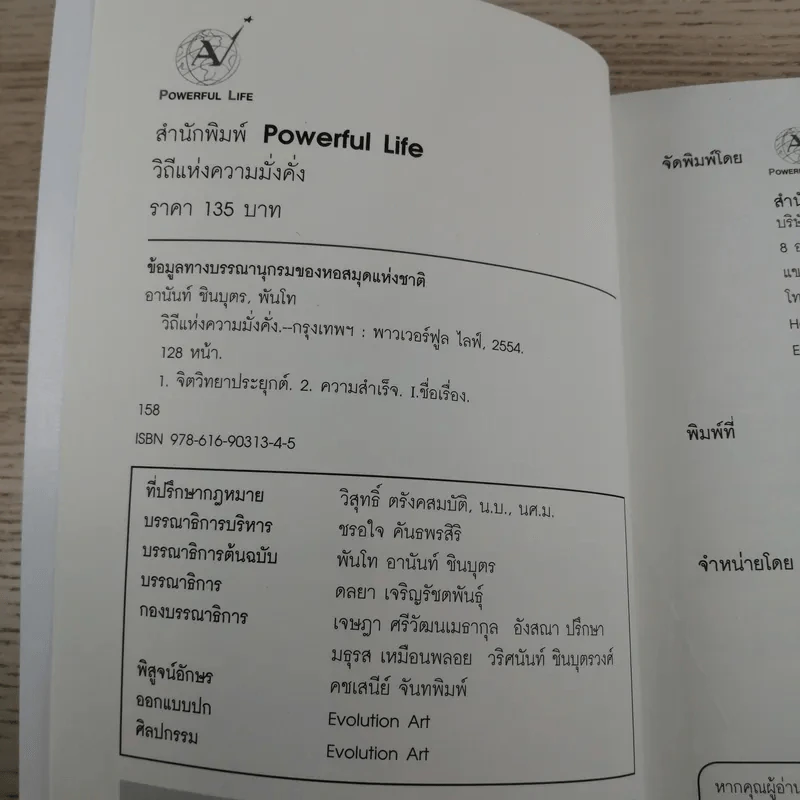 AV
POWERFUL LIFE
สำนักพิมพ์ Powerful Life
วิถีแห่งความมั่งคั่ง
ราคา 135 บาท
ข้อมูลทางบรรณานุกรมของหอสมุดแห่งชาติ
อานันท์ ชินบุตร, พันโท
วิถีแห่งความมั่งคั่ง.--กรุงเทพฯ : พาวเวอร์ฟูล ไลฟ์, 2554.
128 หน้า.
1. จิตวิทยาประยุกต์. 2. ความสำเร็จ. I.ชื่อเรื่อง.
158
ISBN 978-616-90313-4-5
ที่ปรึกษากฎหมาย วิสุทธิ์ ตรังคสมบัติ, น.บ., นศ.ม.
บรรณาธิการบริหาร ชรอใจ คันธพรสิริ
บรรณาธิการต้นฉบับ พันโท อานันท์ ชินบุตร
บรรณาธิการ ดลยา เจริญรัชตพันธุ์
กองบรรณาธิการ เจษฎา ศรีวัฒนเมธากุล อังสณา ปรึกษา
มธุรส เหมือนพลอย วริศนันท์ ชินบุตรวงศ์
พิสูจน์อักษร คชเสนีย์ จันทพิมพ์
ออกแบบปก Evolution Art
ศิลปกรรม Evolution Art
จัดพิมพ์โดย
8
พิมพ์ที่
จำหน่ายโดย
หากคุณผู้อ่าน